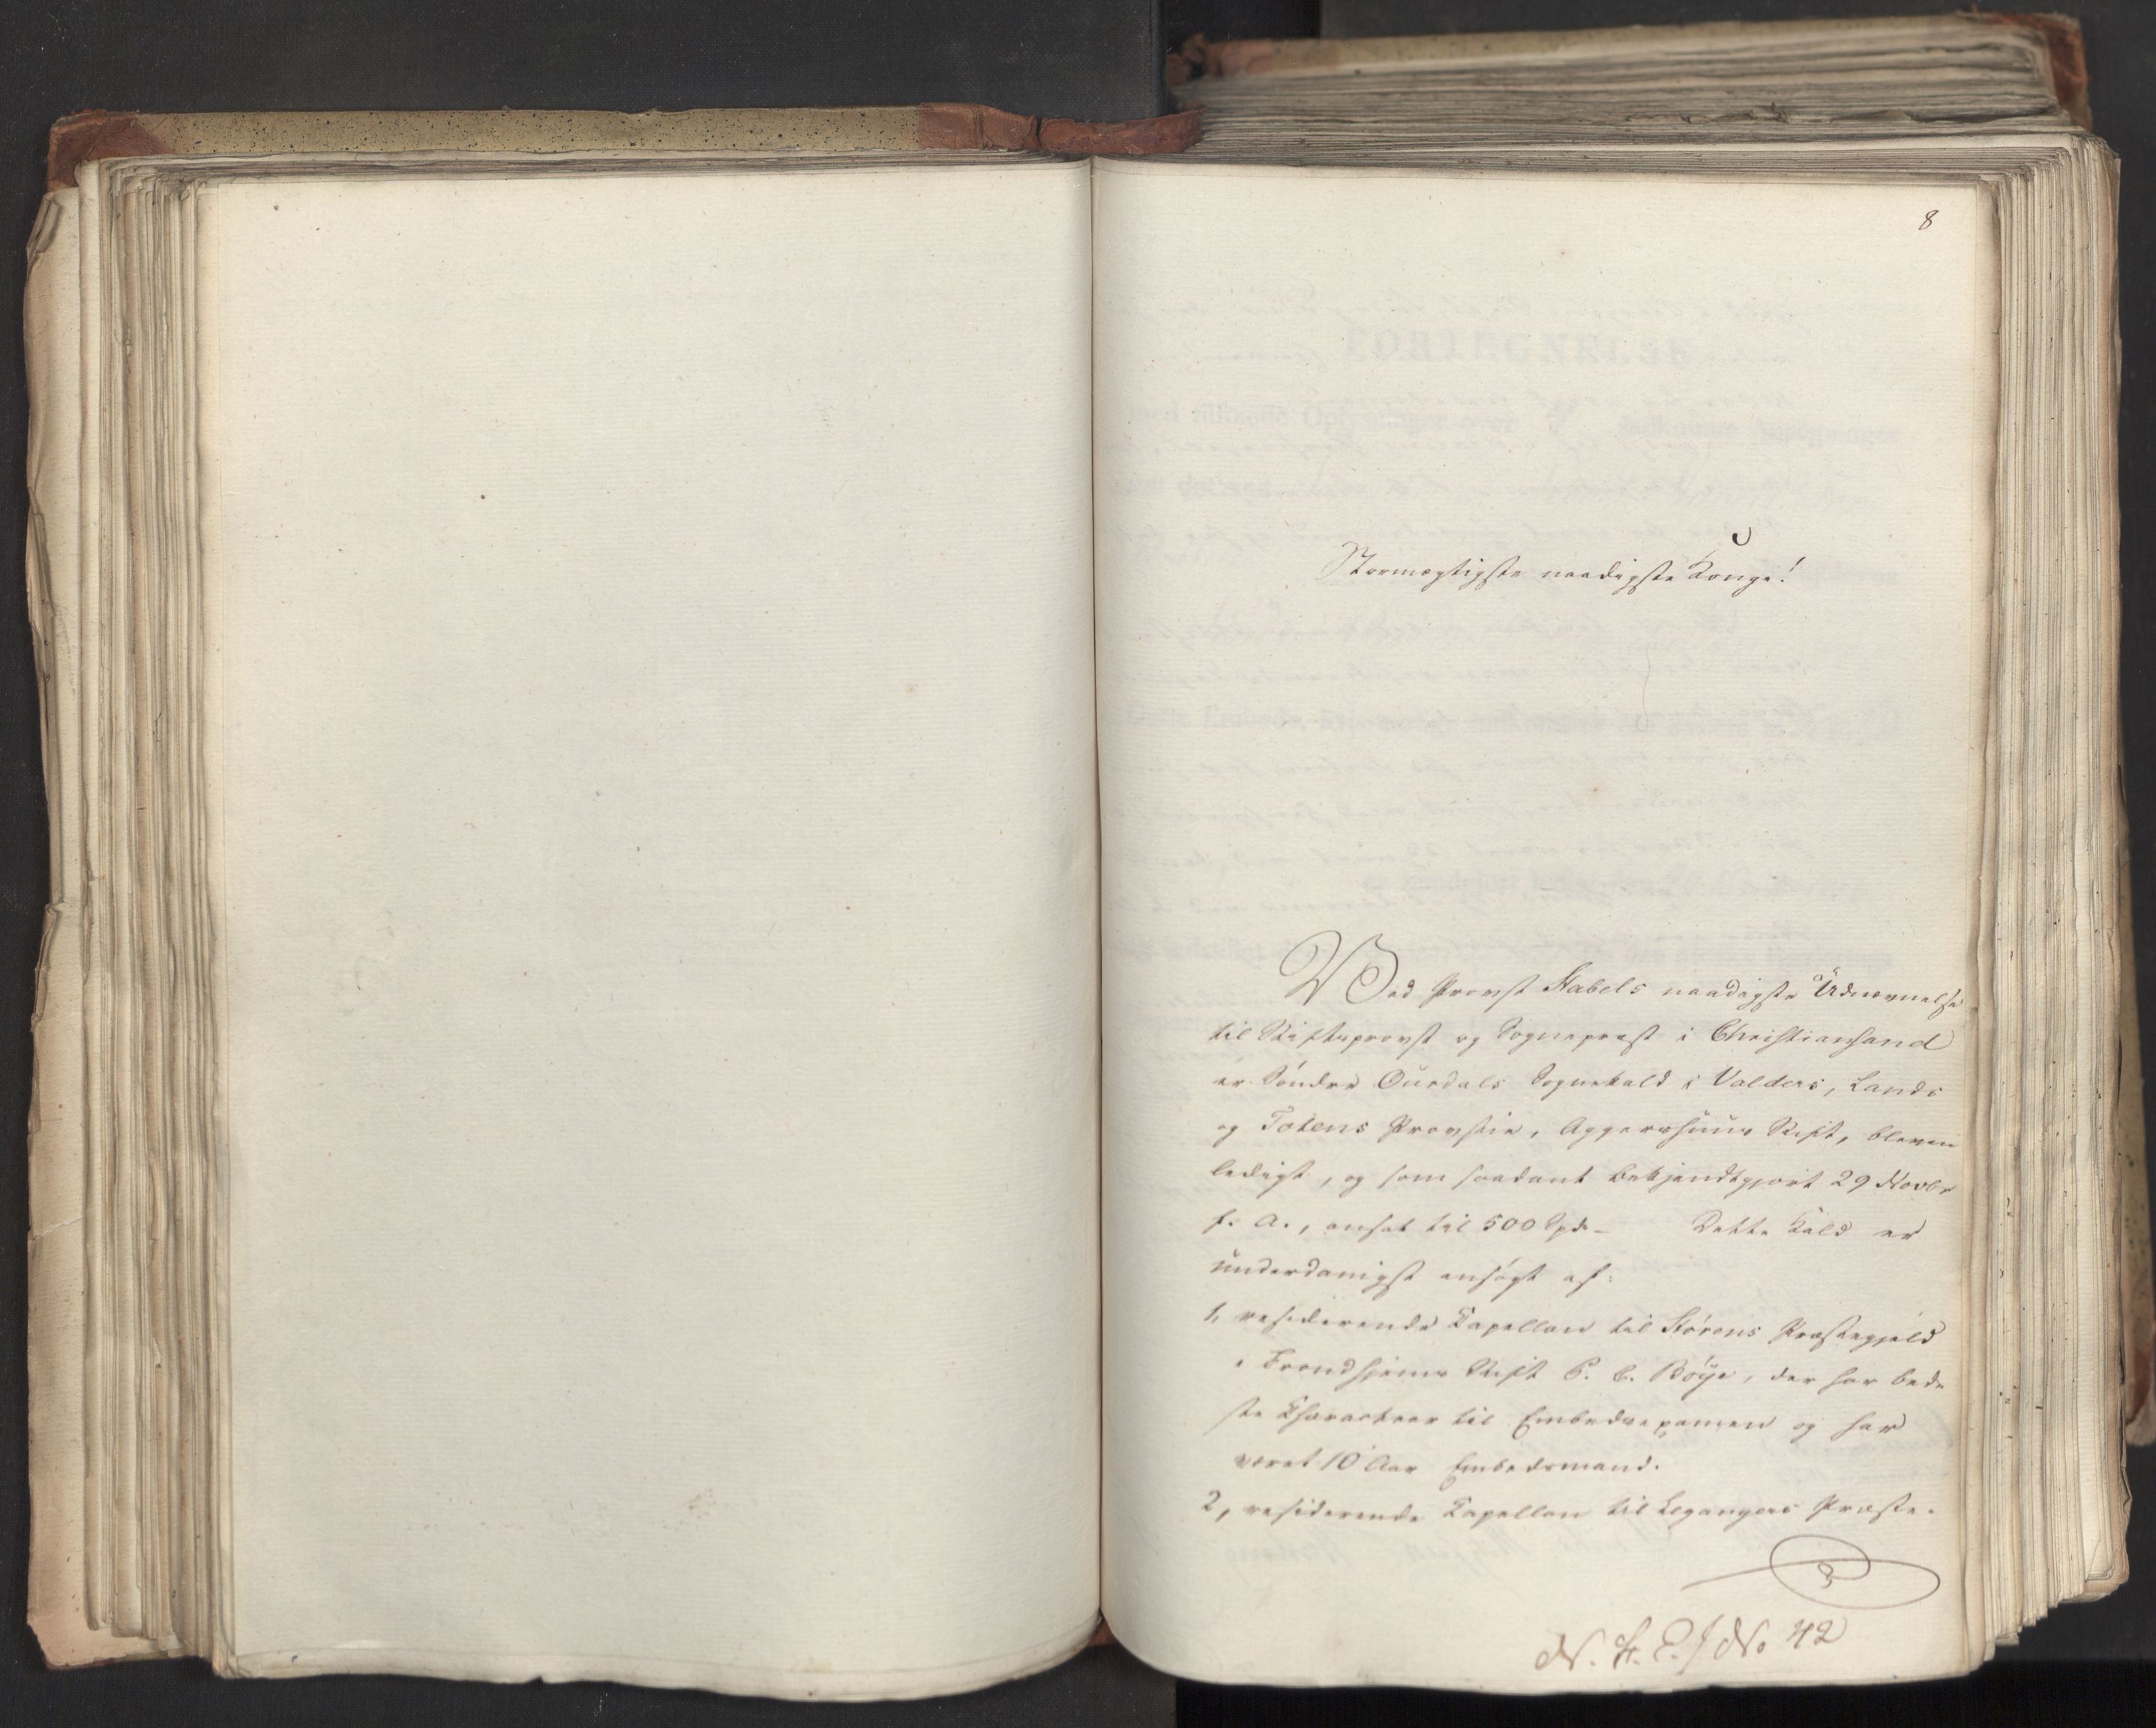 8
Stormægtigste naadigste Konge!
Ved Provst Stabels naadigste Udnævnelse
til Stiftsprovst og Sognepræst i Christiansand
er Söndre Ourdals Sognekald i Valders, Lands
og Totens Provstie, Aggershuus Stift, bleven
ledigt, og som saadant bekjendtgjort 29 Novbr
f. A., ansat til 500 Spd. Dette Kald er
underdanigst ansögt af:
1, residerende Kapellan til Störens Præstegjeld
i Trondhjems Stift P. C. Böye, der har bed
ste Charakteer til Embedsexamen og har
været 10 Aar Embedsmand.
2, residerende Kapellan til Leganger Præste-
N. St. E. J No 42